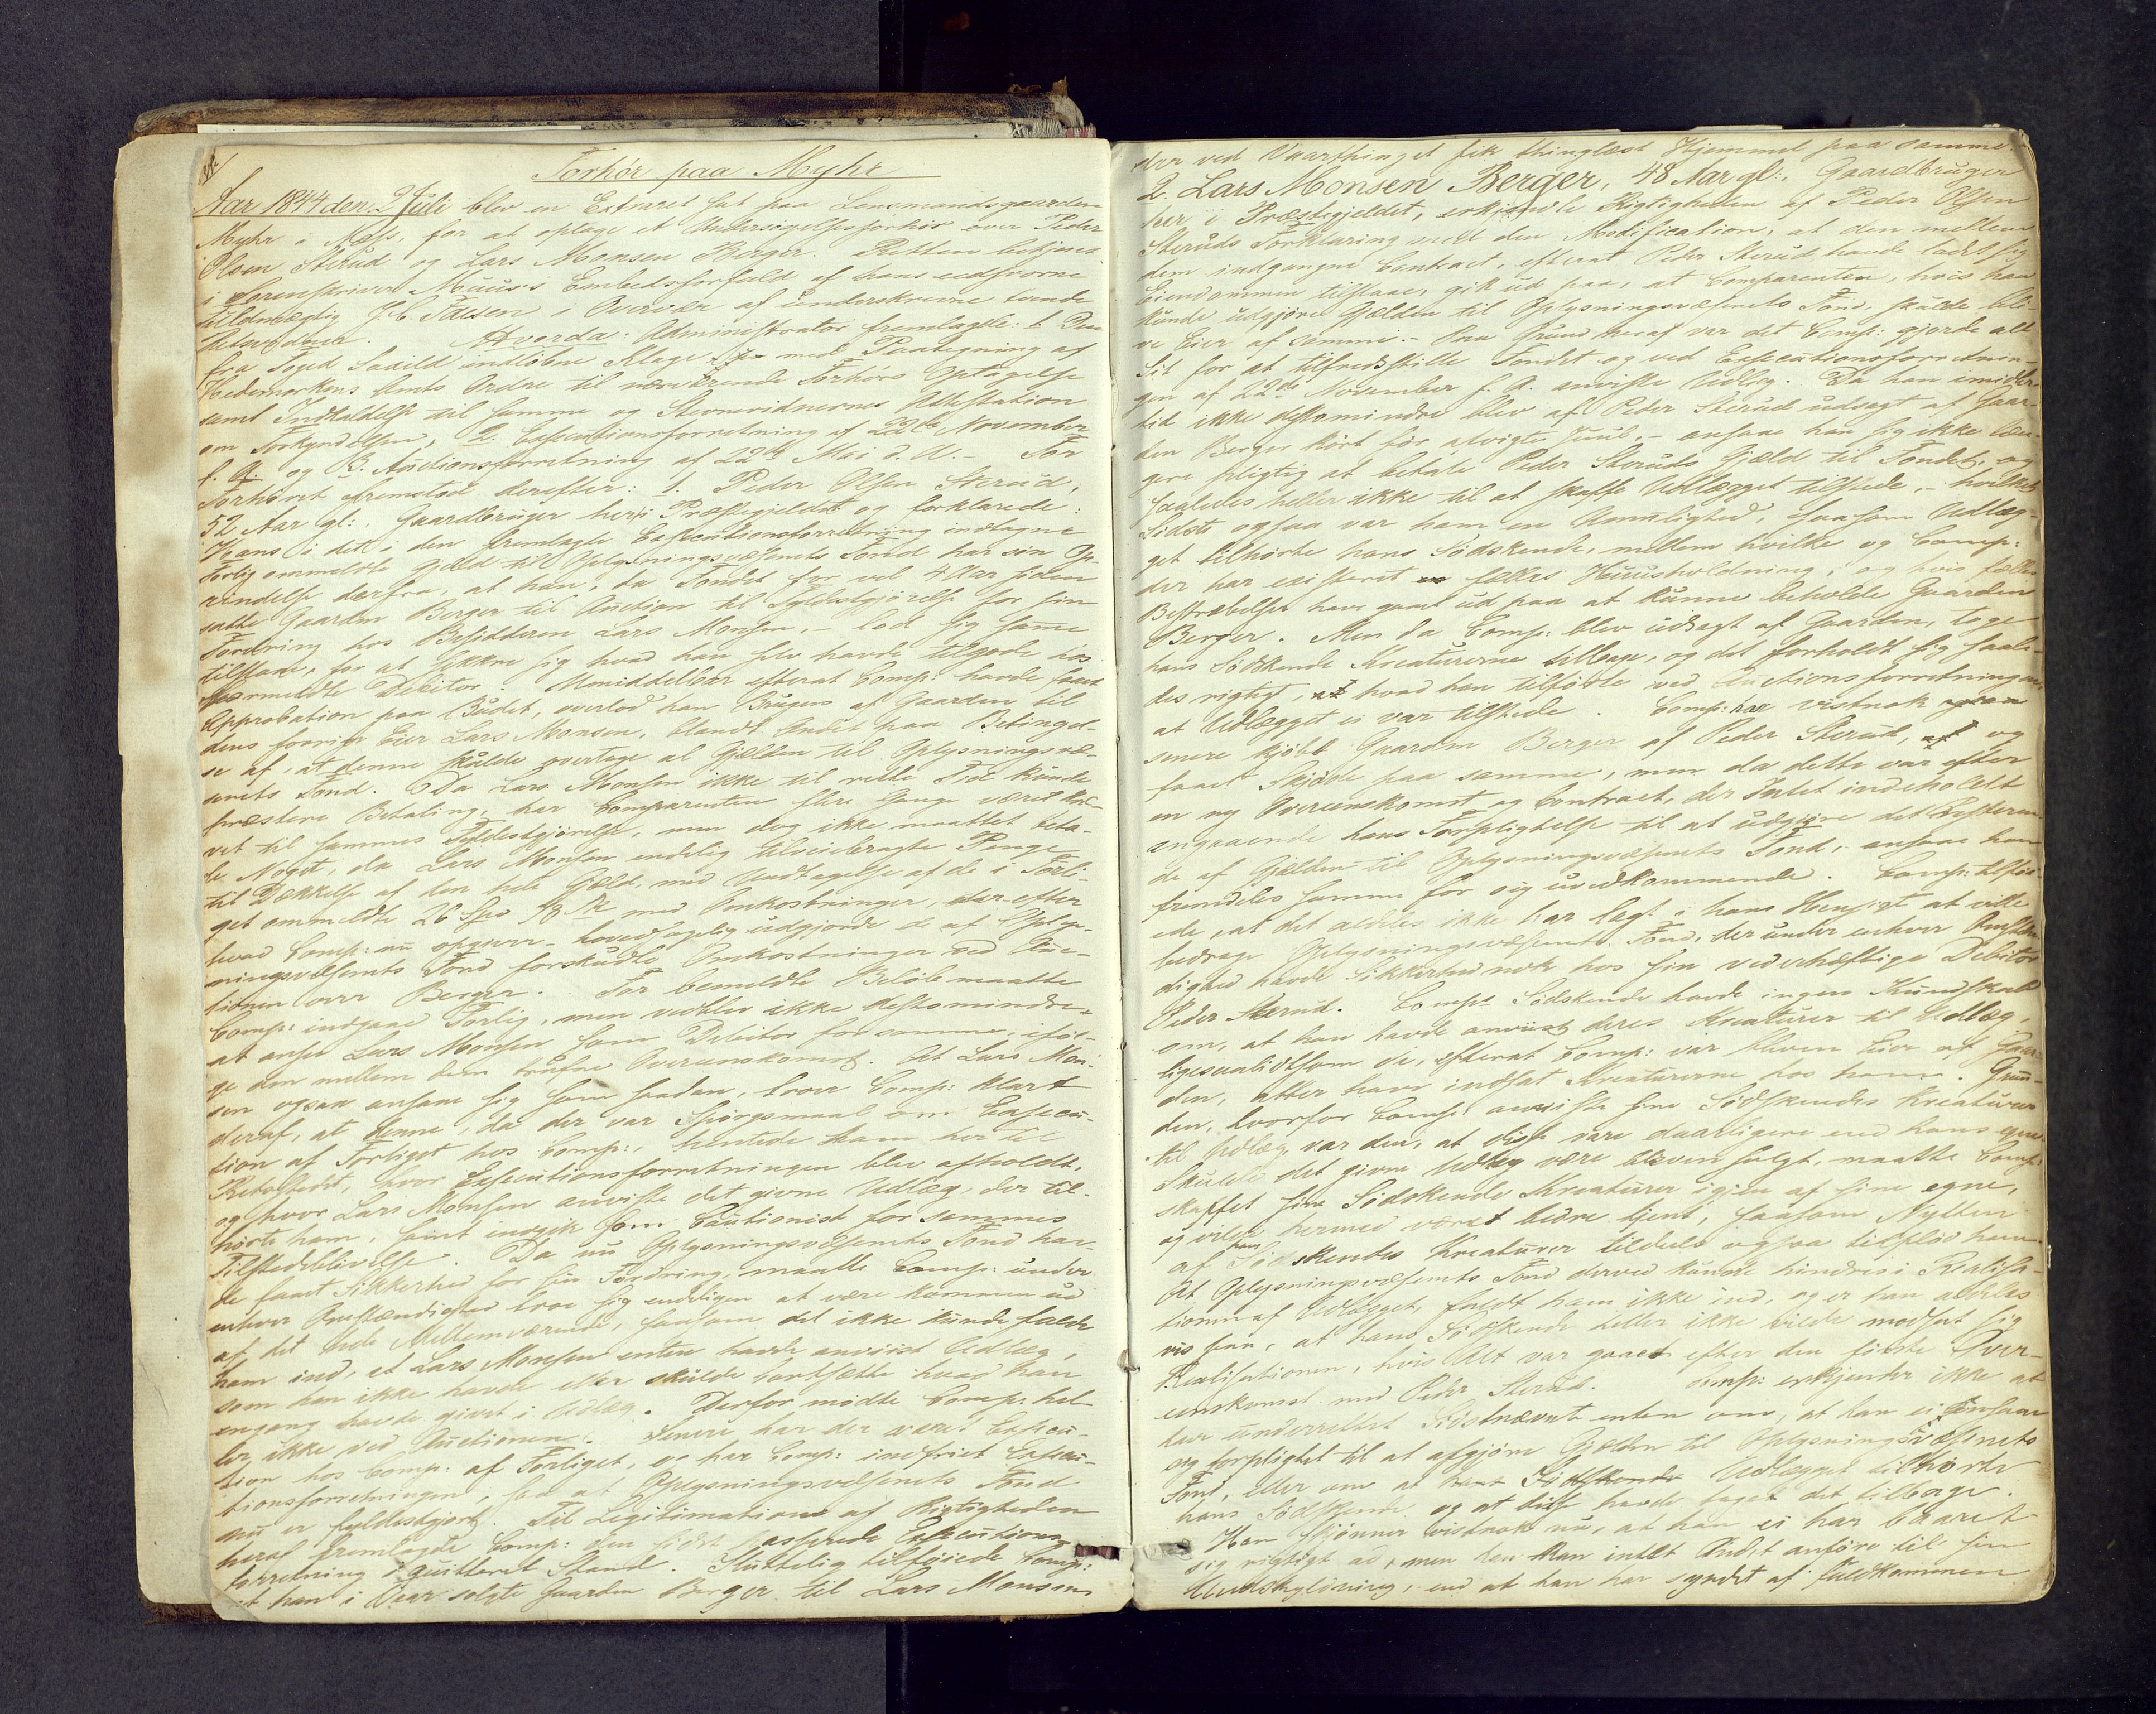 Forhör paa Myhr
Aar 1844 den 2 Juli blev en Extraret sat paa Lensmandsgaarden
Myhr i Næs, for at optage et Undersøgelsesforhör over Peder
Olsen Sterud og Lars Monsen Berger. Retten betjent
i Sorenskriver Muus's Embedsforfald af hans edsvorne
Fuldmægtig J. C. i Overvær af underskrevne tvende
Retsvidner. Hvorda: Administrator fremlagde: 1. Den
fra Foged indlöbne Klage med Paategning af
Hedemarkens Amts Ordre til nærværende Forhörs Optagelse
samt Indkaldelse til samme og Stevnevidnernes Attestation
om Forkyndelsen, 2. Executionsforretning af 22de November
f. A. og 3. Auctionsforretning af 22de Mai d. A. – For
Forhöret fremstod derefter: 1. Peder Olsen Sterud,
52 Aar gl:, Gaardbruger her i Præstegjeldet og forklarede:
Hans i det i den fremlagte Executionsforretning indtagne
Forlig ommeldte Gjæld til Oplysningsvæsenets Fond har sin Op-
rindelse derfra, at han, da Fondet for vel 4 Aar siden
satte Gaarden Berger til Auction til Fyldestgjörelse for sin
Fordring hos Besidderen Lars Monsen, – lod sig samme
tilslaae, for at sikkre sig hvad han selv havde tilgode hos
bemeldte Debitor. Umiddelbar efterat Comp: havde faaet
Approbation paa Budet, overlod han Brugen af Gaarden til
dens forrige Eier Lars Monsen, blandt Andet paa Betingel-
se af, at denne skulde overtage al Gjælden til Oplysningsvæ-
senets Fond. Da Lars Monsen ikke til rette Tid kunde
præstere Betaling, har Comparenten flere Gange været kræ-
vet til sammes Fyldestgjörelse, men dog ikke maattet beta-
le Noget, da Lars Monsen endelig tilveiebragte Penge
til Dækkelse af den hele Gjæld, med Undtagelse af de i Forli-
get ommeldte 26 Spd med Omkostninger, der efter
hvad Comp: nu opgiver – hovedsagelig udgjorde de af Oplys-
ningsvæsenets Fond forskudte Omkostninger ved Auc-
tionen over Berger. For bemeldte Belöb maatte
Comp: indgaae Forlig, men vedblev ikke destomindre,
at ansee Lars Monsen som Debitor for samme, iföl-
ge den mellem dem trufne Overeenskomst. At Lars Mon-
sen ogsaa ansaae sig som saadan, troer Comp: klart
deraf, at denne, da der var Spörgsmaal om Execu-
tion af Forliget hos Comp:, hentede ham her til
Retsstedet, hvor Executionsforretningen blev afholdt,
og hvor Lars Monsen anviste det givne Udlæg, der til-
hörte ham, samt indgik som Cautionist for sammes
Tilstedeblivelse. Da nu Oplysningsvæsenets Fond hav-
de faaet Sikkerhed for sin Fordring, maatte Comp: under
enhver Omstændighed troe sig endeligen at være kommen ud
af det hele Mellemværende, saasom det ikke kunde falde
ham ind, at Lars Monsen enten havde anviist Udlæg,
som han ikke havde eller skulde bortsætte hvad han
engang havde givet i Udlæg. Derfor mödte Comp: hel-
ler ikke ved Auctionen. Senere har der været Execu-
tion hos Comp: af Forliget, og har Comp: indfriet Execu-
tionsforretningen, saa at Oplysningsvæsenets Fond
nu er fyldestgjort. Til Legitimation af Rigtigheden
heraf fremlagde Comp: den sidst passerede Executions-
forretning i quitteret Stand. Sluttelig tilföiede Comp:
at han i Vaar solgte Gaarden Berger til Lars Monsen
der ved Vaarthinget fik thinglæst Hjemmel paa samme.
2. Lars Monsen Berger, 48 Aar gl:, Gaardbruger
her i Præstegjeldet, erkjendte Rigtigheden af Peder Olsen
Steruds Forklaring med den Modification, at den mellem
dem indgangne Contract, efterat Peder Sterud havde ladet sig
Eiendommen tilslaae, gik ud paa, at Comparenten, hvis han
kunde udgjöre Gjælden til Oplysningsvæsenets Fond skulde bli-
ve Eier af samme. – Paa Grund heraf var det Comp: gjorde alt
Sit for at tilfredsstille Fondet og ved Executionsforretnin-
gen af 22de November f. A. anviste Udlæg. Da han imidler-
tid ikke destomindre blev af Peder Sterud udsagt af Gaar-
den Berger kort för afvigte Juul, – ansaae han sig ikke læn-
gere pligtig at betale Peder Steruds Gjæld til Fondet, og
saaledes heller ikke til at skaffe Udlægget tilstede, – hvilket
Sidste ogsaa var ham en Umulighed, saasom Udlæg-
get tilhörte hans Södskende, mellem hvilke og Comp:
der har existeret fælles Huusholdning, og hvis fælles
Bestræbelser have gaaet ud paa at kunne beholde Gaarden
Berger. Men da Comp: blev udsagt af Gaarden, toge
hans Södskende Kreaturerne tilbage, og det forholdt sig saale-
des rigtigt, hvad han tilförte ved Auctionsforretningen,
at Udlægget ei var tilstede. Comp: har vistnok
senere kjöbt Gaarden Berger af Peder Sterud, og
faaet Skjöde paa samme, men da dette var efter
en ny Overeenskomst og Contract, der Intet indeholdt
angaaende hans Forpligtelse til at udgjöre det Resteren-
de af Gjælden til Oplysningsvæsenets Fond, – ansaae han
fremdeles samme for sig uvedkommende. Comp: tilföi-
ede, at det aldeles ikke har lagt i hans Hensigt at ville
bedrage Oplysningsvæsenets Fond, der under enhver Omstæn-
dighed havde Sikkerhed nok hos sin vederhæftige Debitor
Peder Sterud. Comps Södskende havde ingen Kundskab
om, at han havde anviist deres Kreaturer til Udlæg,
ligesaalidt som de, efterat Comp: var bleven Eier af Gaar-
den, atter have indsat Kreaturerne hos ham. Grun-
den, hvorfor Comp: anviste sine Södskendes Kreaturer
til Udlæg var den, at disse vare daarligere end hans egne.
Skulde det givne Udlæg være bleven solgt, maatte Comp:
skaffet sine Södskende Kreaturer igjen af sine egne,
og vilde hermed været bedre tjent, saasom Nytten
af hans Södskendes Kreaturer tildeels ogsaa tilflöd ham.
At Oplysningsvæsenets Fond derved kunde hindres i Realisa-
tionen af Udlægget, faldt ham ikke ind, og er han aldeles
vis paa, at hans Södskende heller ikke vilde modsat sig
Realisationen, hvis Alt var gaaet efter den förste Over-
eenskomst med Peder Sterud. Comp: erkjender ikke at
have underrettet Sidstnævnte enten om, at han ei ansaae
sig forpligtet til at afgjöre Gjælden til Oplysningsvæsenets
Fond, eller om at Udlægget tilhörte
hans Södskende og at disse havde taget det tilbage.
Han skjönner vistnok nu, at han ei har baaret
sig rigtigt ad, men han kan intet Andet anföre til sin
Undskyldning, end at han har syndet af fuldkommen